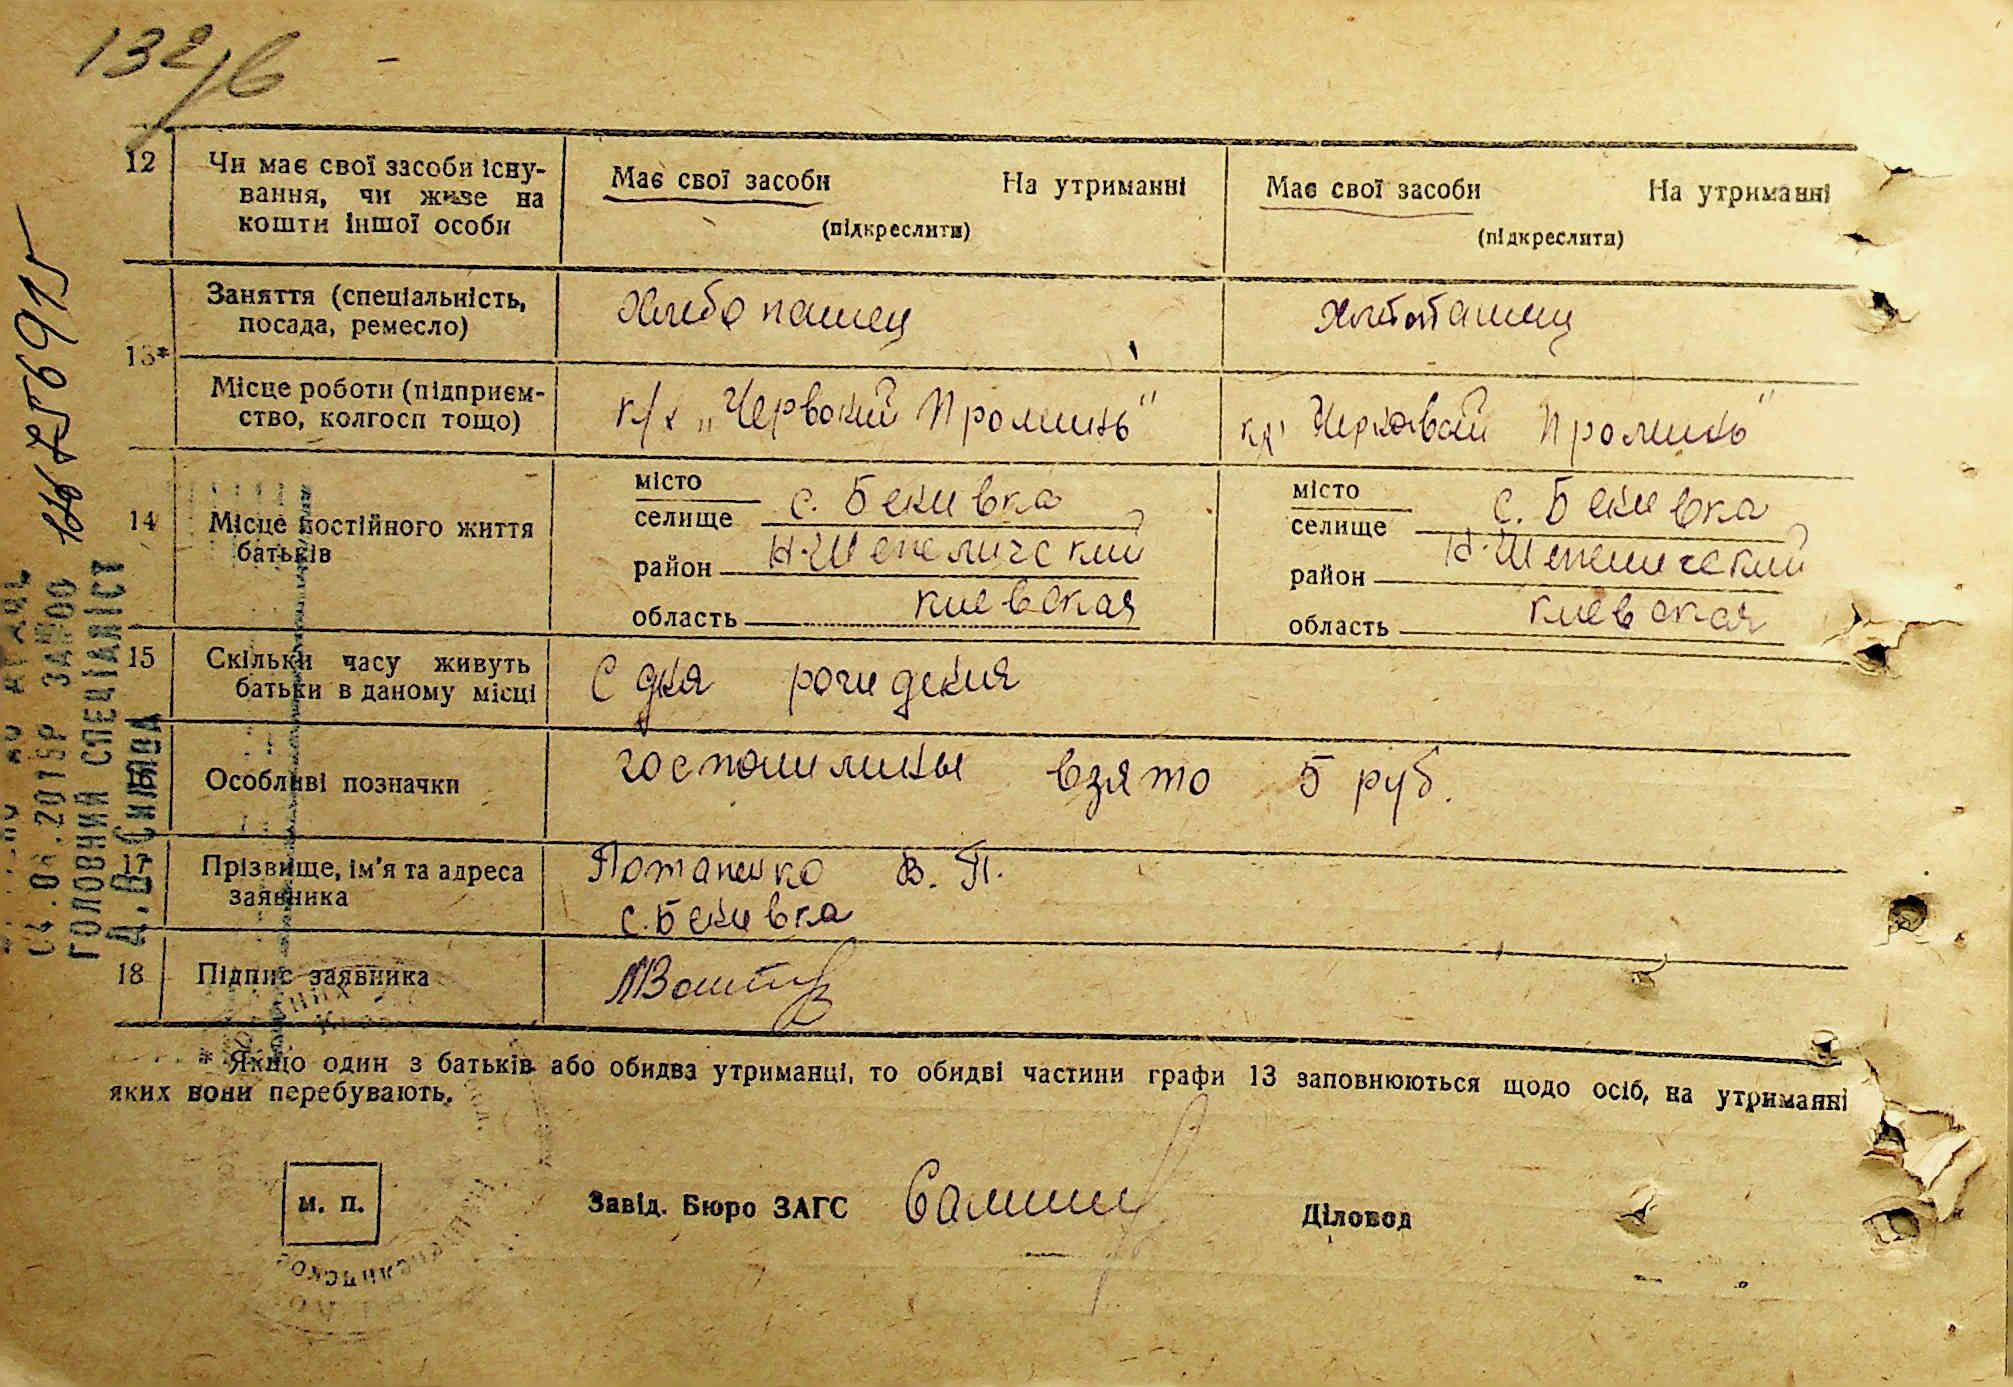 132/6
12 Чи має свої засоби існу-
вання, чи живе на
кошти іншої особи
Має свої засоби На утриманні
(підкреслити)
Має свої засоби На утриманні
(підкреслити)
13*
Заняття (спеціальність,
посада, ремесло)
Хлебопашец
Хлебопашец
Місце роботи (підприєм-
ство, колгосп тощо)
к/х „Червоний Проминь"
Червоний Проминь"
14 Місце постійного життя
батьків
місто
селище с. Бенивка
район Н-Шепеличский
область киевская
місто
селище с. Бенивка
район Н-Шепеличский
область киевская
15 Скільки часу живуть
батьки в даному місці
С дня рождения
16 Особливі позначки
госполшлины взято 5 руб.
17 Прізвище, ім'я та адреса
заявника
Потапенко В. П.
с. Бенивка
18 Підпис заявника
* Якщо один з батьків або обидва утриманці, то обидві частини графи 13 заповнюються щодо осіб, на утриманні
яких вони перебувають.
м. п.
Завід. Бюро ЗАГС
Діловод
ГОЛОВНИЙ СПЕЦІАЛІСТ